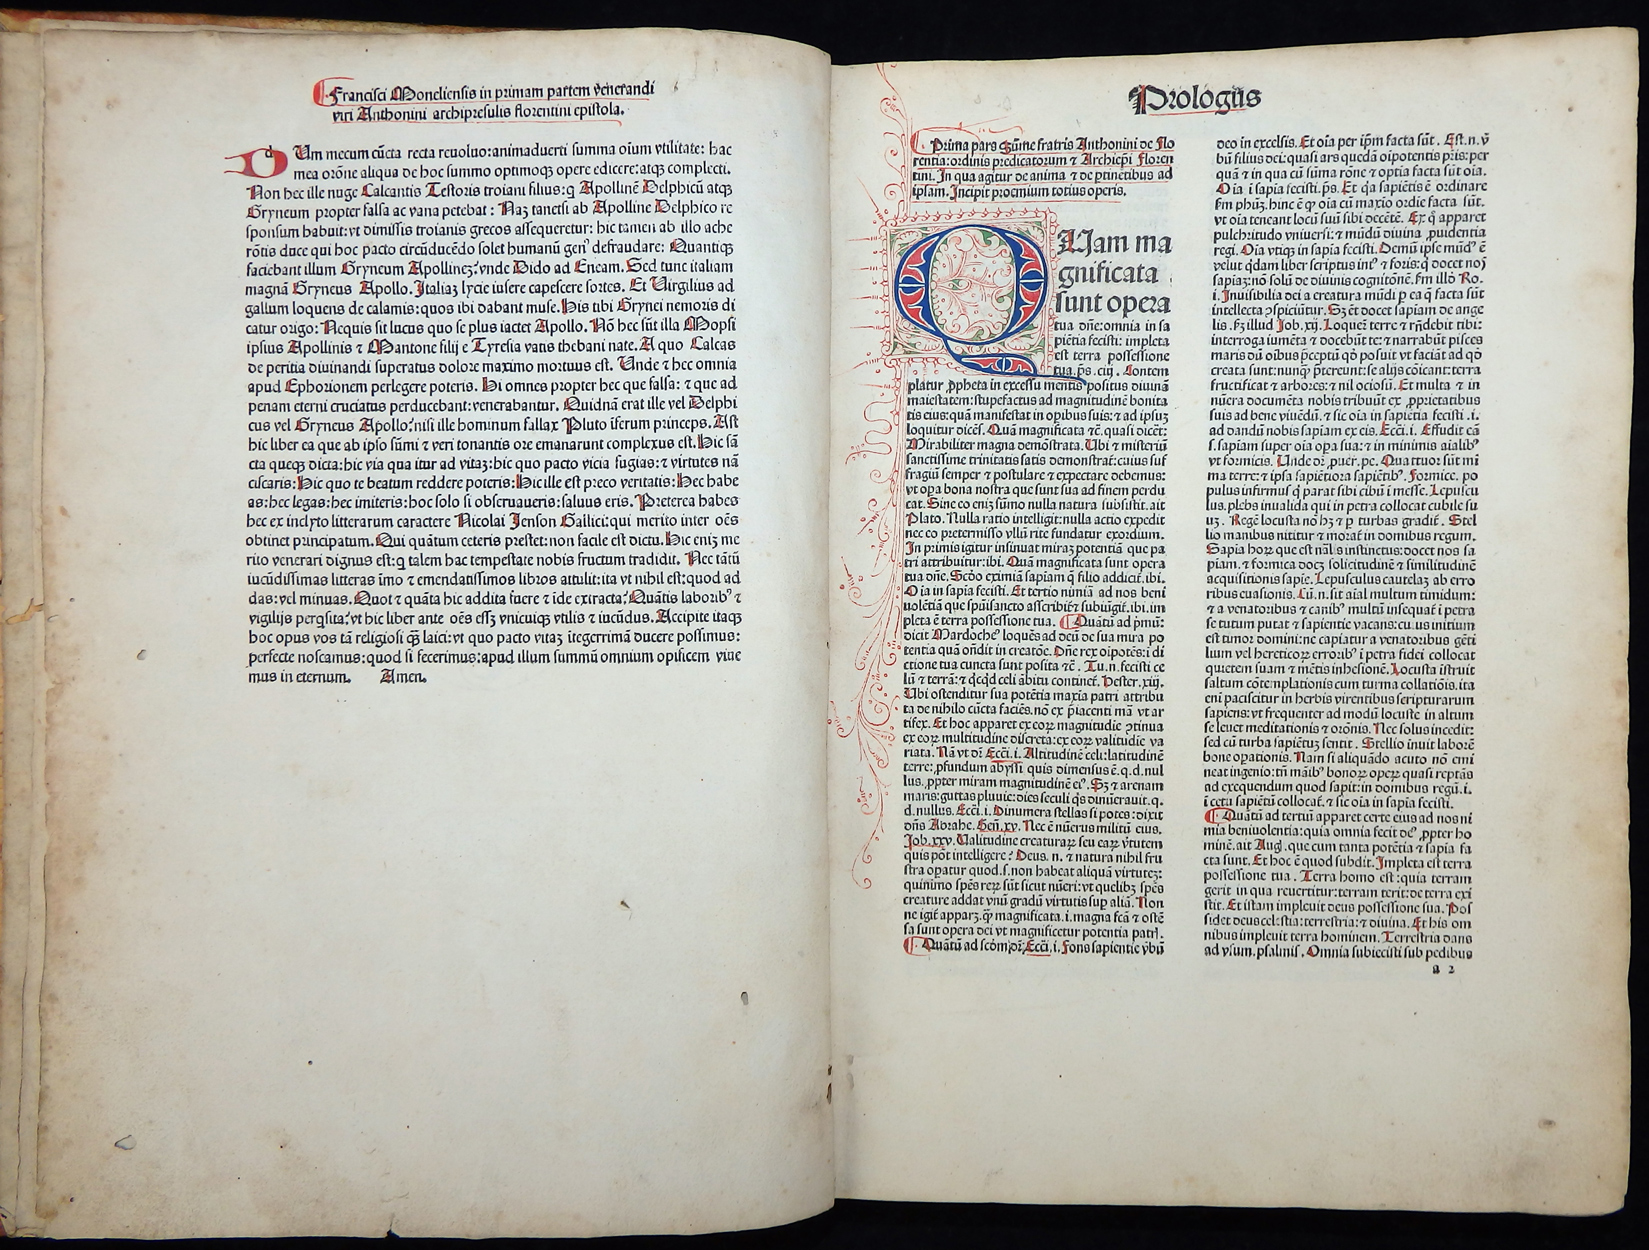 Francisci Moneliensis in primam partem venerandi
viri Anthonini archipresulis florentini epistola.
dUm mecum cũcta recta reuoluo: animaduerti summa oĩum vtilitate: hac
mea orõne aliqua de hoc summo optimoqꝫ opere edicere: atqꝫ complecti.
Non hec ille nuge Calcantis Testoris troiani filius: q̃ Apollinẽ Delphicũ atqꝫ
Gryneum propter falsa ac vana petebat: Naꝫ tanetsi ab Apolline Delphico re
sponsum habuit: vt dimissis troianis grecos assequeretur: hic tamen ab illo ache
rõtis duce qui hoc pacto circũducẽdo solet humanũ genꝰ defraudare: Quantiqꝫ
faciebant illum Gryneum Apollineꝫ? vnde Dido ad Eneam. Sed tunc italiam
magnã Gryneus Apollo. Italiaꝫ lycie iusere capescere sortes. Et Uirgilius ad
gallum loquens de calamis: quos ibi dabant muse. His tibi Grynei nemoris di
catur origo: Nequis sit lucus quo se plus iactet Apollo. Nõ hec sũt illa Mopsi
ipsius Apollinis ⁊ Mantone filij e Tyresia vatis thebani nate. A quo Calcas
de peritia diuinandi superatus dolore maximo mortuus est. Unde ⁊ hec omnia
apud Ephorionem perlegere poteris. Hi omnes propter hec que falsa: ⁊ que ad
penam eterni cruciatus perducebant: venerabantur. Quidnã erat ille vel Delphi
cus vel Gryneus Apollo? nisi ille hominum fallax Pluto ĩferum princeps. Ast
hic liber ea que ab ipso sũmi ⁊ veri tonantis ore emanarunt complexus est. Hic sã
cta queqꝫ dicta: hic via qua itur ad vitaꝫ: hic quo pacto vicia fugias: ⁊ virtutes nã
ciscaris: Hic quo te beatum reddere poteris: Hic ille est preco veritatis: Hec habe
as: hec legas: hec imiteris: hoc solo si obseruaueris: saluus eris. Preterea habes
hec ex inclyto litterarum caractere Nicolai Jenson Gallici: qui merito inter oẽs
obtinet principatum. Qui quãtum ceteris prestet: non facile est dictu. Hic eniꝫ me
rito venerari dignus est: q̃ talem hac tempestate nobis fructum tradidit. Nec tãtũ
iucũdissimas litteras ĩmo ⁊ emendatissimos libros attulit: ita vt nihil est: quod ad
das: vel minuas. Quot ⁊ quãta hic addita fuere ⁊ ĩde extracta? Quãtis laboribꝰ ⁊
vigilijs perq̃sita? vt hic liber ante oẽs esseꝫ vnicuiqꝫ vtilis ⁊ iucũdus. Accipite itaqꝫ
hoc opus vos tã religiosi q̃ꝫ laici: vt quo pacto vitaꝫ ĩtegerrimã ducere possimus:
perfecte noscamus: quod si fecerimus: apud illum summũ omnium opificem viue
mus in eternum. Amen.
Prologus
Prima pars sũme fratris Anthonini de Flo
rentia: ordinis predicatorum ⁊ Archiepĩ Floren
tini. In qua agitur de anima ⁊ de ꝑtinẽtibus ad
ipsam. Incipit proemium totius operis.
QUam ma
gnificata
sunt opera
tua dñe: omnia in sa
piẽtia fecisti: impleta
est terra possessione
tua. p̃s. ciij. Contem
platur ꝓpheta in excessu mentis positus diuinã
maiestatem: stupefactus ad magnitudinẽ bonita
tis eius: quã manifestat in opibus suis: ⁊ ad ipsuꝫ
loquitur dicẽs. Quã magnificata ⁊c̃. quasi dicẽt:
Mirabiliter magna demõstrata. Ubi ⁊ misteriũ
sanctissime trinitatis satis demonstrat̃: cuius suf
fragiũ semper ⁊ postulare ⁊ expectare debemus:
vt oꝑa bona nostra que sunt sua ad finem perdu
cat. Sine eo eniꝫ sũmo nulla natura subsistit. ait
Plato. Nulla ratio intelligit: nulla actio expedit
nec eo pretermisso vllũ rite fundatur exordium.
In primis igitur insinuat miraꝫ potentiã que pa
tri attribuitur: ibi. Quã magnificata sunt opera
tua dñe. Scd̃o eximiã sapiam q̃ filio addicit̃. ibi.
Oĩa in sapia fecisti. Et tertio nimiã ad nos beni
uolẽtiã que spũisancto ascribit̃ ⁊ subiũgit̃. ibi. im
pleta ẽ terra possessione tua. Quãtũ ad pꝛimũ:
dicit Mardocheꝰ loquẽs ad deũ de sua mira po
tentia quã oñdit in creatõe. Dñe rex oĩpotẽs: ĩ di
ctione tua cuncta sunt posita ⁊c̃. Tu. n. fecisti ce
lũ ⁊ terrã: ⁊ q̃cq̃d celi ãbitu continet̃. Hester. xiij.
Ubi ostenditur sua potẽtia maxĩa patri attribu
ta de nihilo cũcta faciẽs. nõ ex p̃iacenti mã vt ar
tifex. Et hoc apparet ex eoꝝ magnitudie ꝯtinua
ex eoꝝ multitudine discreta: ex eoꝝ valitudie va
riata. Nã vt dꝛ̃ Ecc̃i. i. Altitudinẽ celi: latitudinẽ
terre: ꝓfundum abyssi quis dimensus ẽ. q. d. nul
lus. ꝓpter miram magnitudinẽ eiꝰ. Sꝫ ⁊ arenam
maris: guttas pluuie: dies seculi q̃s dinũerauit. q.
d. nullus. Ecc̃i. i. Dinumera stellas si potes: dixit
dñs Abrahe. Geñ. xv. Nec ẽ nũerus militũ eius.
Job. xxv. Ualitudine creaturaꝝ seu eaꝝ v̾tutem
quis põt intelligere? Deus. n. ⁊ natura nihil fru
stra oꝑatur quod. s. non habeat aliquã virtuteꝫ:
quinimo spẽs reꝝ sũt sicut nũeri: vt quelibꝫ spẽs
creature addat vnũ gradũ virtutis suꝑ aliã. Non
ne igit̃ apparꝫ. qꝫ magnificata. i. magna fcã ⁊ ostẽ
sa sunt opera dei vt magnificetur potentia patꝛ̃.
Quãtũ ad scdm̃ dꝛ̃ Ecc̃i. i. Fons sapientie ṽbũ
deo in excelsis. Et oĩa per ip̃m facta sũt. Est. n. ṽ
bũ filius dei: quasi ars quedã oĩpotentis p̃ris: per
quã ⁊ in qua cũ sũma rõne ⁊ optĩa facta sũt oĩa.
Oĩa ĩ sapia fecisti. p̃s. Et q̃a sapiẽtis ẽ ordinare
ẜm phũꝫ. hinc ẽ qꝫ oĩa cũ maxĩo ordie facta sũt.
vt oĩa teneant locũ suũ sibi decẽtẽ. Ex q̃ apparet
pulchritudo vniuersi: ⁊ mũdũ diuina ꝓuidentia
regi. Oĩa vtiqꝫ in sapia fecisti. Demũ ipse mũdꝰ ẽ
velut q̃dam liber scriptus intꝰ ⁊ foris: q̃ docet noꝫ
sapiaꝫ: nõ solũ de diuinis cognitõne. ẜm illõ Ro.
i. Inuisibilia dei a creatura mũdi ꝑ ea q̃ facta sũt
intellecta ꝯspiciũtur. Sꝫ ẽt docet sapiam de ange
lis. ẜꝫ illud Job. xij. Loquẽt̃ terre ⁊ rñdebit tibi:
interroga iumẽta ⁊ docebũt te: ⁊ narrabũt pisces
maris dũ oĩbus p̃ceptũ qd̃ posuit vt faciãt ad qd̃
creata sunt: nunqꝫ p̃tereunt: se alijs cõicant: terra
fructificat ⁊ arbores: ⁊ nil ociosũ. Et multa ⁊ in
nũera documẽta nobis tribuũt ex ꝓprietatibus
suis ad bene viuẽdũ. ⁊ sic oĩa in sapia fecisti. i.
ad dandũ nobis sapiam ex eis. Ecc̃i. i. Effudit eã
s. sapiam super oĩa oꝑa sua: ⁊ in minimis aĩalibꝰ
vt formicis. Unde dꝛ̃ ꝓuer. pe. Quattuor sũt mi
ma terre: ⁊ ipsa sapiẽtiora sapiẽtibꝰ. Formice. po
pulus infirmus q̃ parat sibi cibũ ĩ messe. Lepuscu
lus. plebs inualida qui in petra collocat cubile su
uꝫ. Regẽ locusta nõ hꝫ ⁊ ꝑ turbas gradit̃. Stel
lio manibus nititur ⁊ morat̃ in domibus regum.
Sapia hoꝝ que est nãlis instinctus: docet nos sa
piam. ⁊ formica doceꝫ solicitudinẽ ⁊ similitudinẽ
acquisitionis sapie. Lepusculus cautelaꝫ ab erro
ribus euasionis. Cũ. n. sit aĩal multum timidum:
⁊ a venatoribus ⁊ canibꝰ multũ insequat̃ ĩ petra
se tutum putat ⁊ sapientie vacans: cuius initium
est timor domini: ne capiatur a venatoribus gẽti
lium vel hereticoꝝ erroribꝰ ĩ petra fidei collocat
quietem suam ⁊ mẽtis inhesionẽ. Locusta istruit
saltum cõtemplationis cum turma collatiõis. ita
eni paciscitur in herbis virentibus scripturarum
sapiens: vt frequenter ad modũ locuste in altum
se leuet meditationis ⁊ orõnis. Nec solus incedit:
sed cũ turba sapiẽtuꝫ sentit. Stellio inuit laborẽ
bone oꝑationis. Nam si aliquãdo acuto nõ emi
neat ingenio: tñ mãibꝰ bonoꝝ opeꝝ quasi reptãs
ad exequendum quod sapit: in domibus regũ. i.
ĩ cetu sapiẽtũ collocat̃. ⁊ sic oĩa in sapia fecisti.
Quãtũ ad tertiũ apparet certe eius ad nos ni
mia beniuolentia: quia omnia fecit deꝰ ꝓpter ho
minẽ. ait Aug̃. que cum tanta potẽtia ⁊ sapia fa
cta sunt. Et hoc ẽ quod subdit. Impleta est terra
possessione tua. Terra homo est: quia terram
gerit in qua reuertitur: terram terit: de terra exi
stit. Et istam impleuit deus possessione sua. Pos
sidet deus celestia: terrestria: ⁊ diuina. Et his om
nibus impleuit terra hominem. Terrestria dans
ad vsum. psalmis̃. Omnia subiecisti sub pedibus
a 2